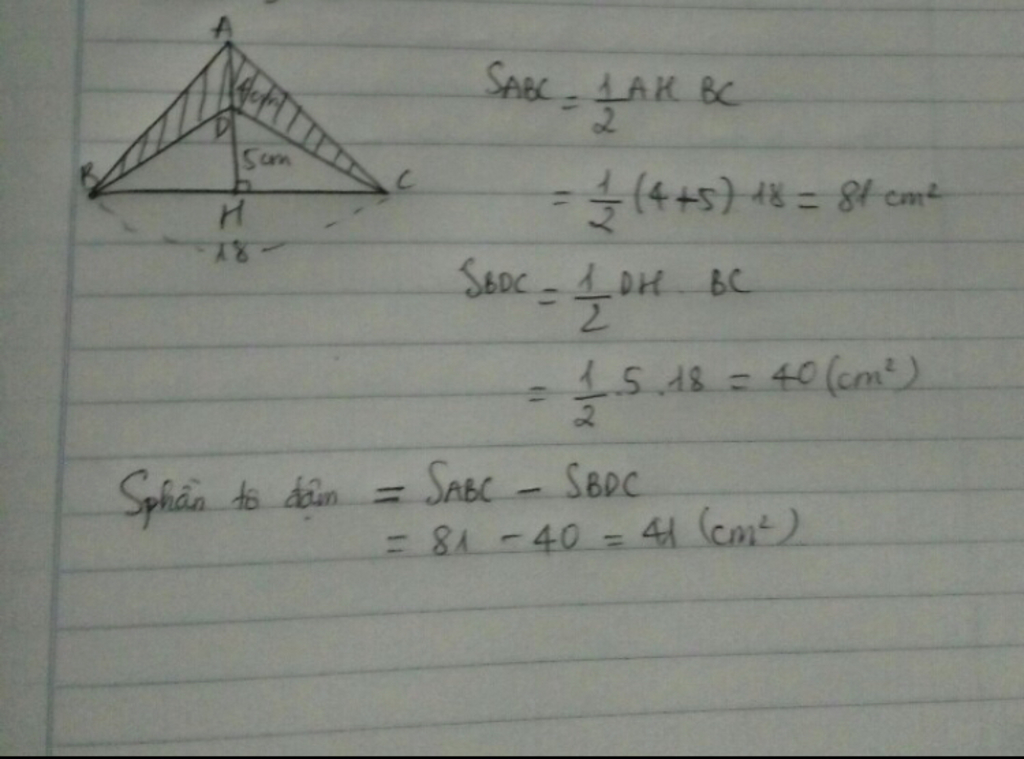 A
4cm
D
5cm
B
C
H
18
SABC = 1/2 AH BC
= 1/2 (4+5) 18 = 81 cm²
SBDC = 1/2 DH . BC
= 1/2 . 5 . 18 = 40 (cm²)
Sphần tô đậm = SABC - SBDC
= 81 - 40 = 41 (cm²)